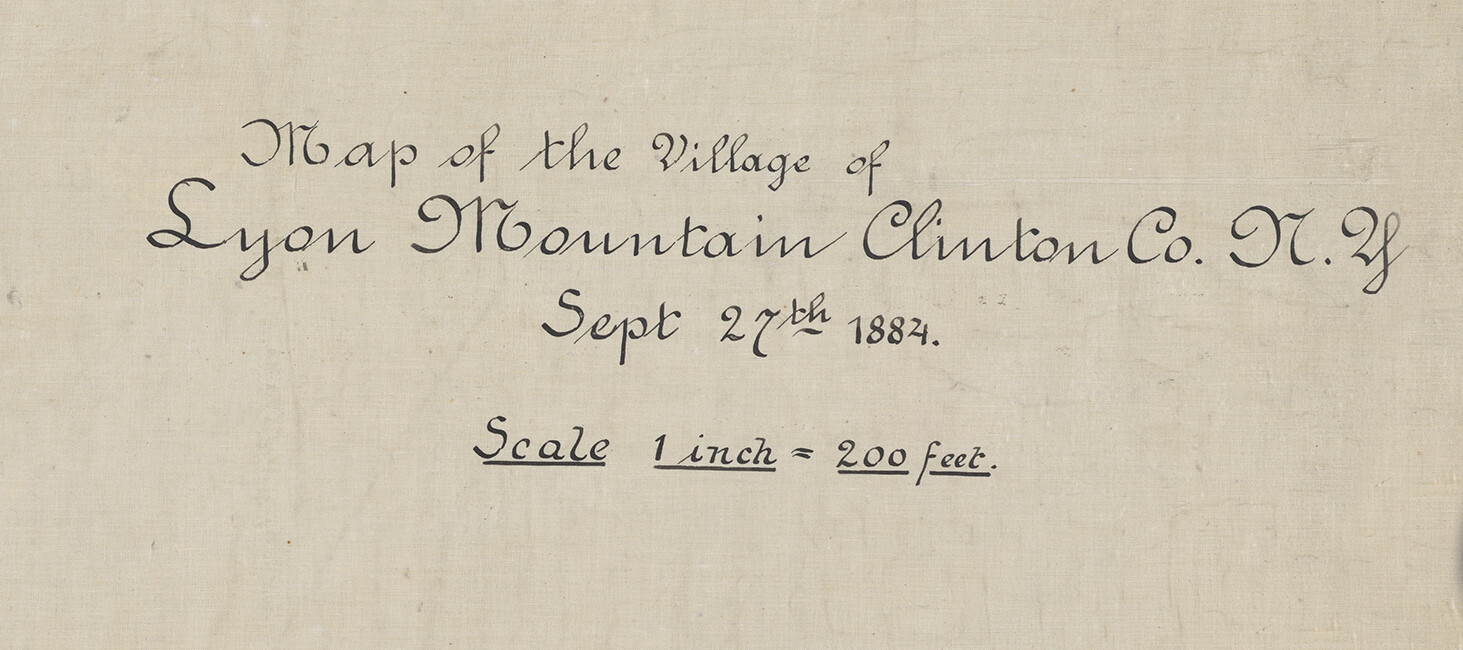 Map of the Village of
Lyon Mountain Clinton Co. N. Y
Sept 27th 1884.
Scale 1 inch = 200 feet.